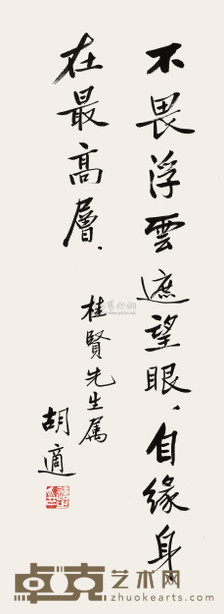 不畏浮雲遮望眼、自缘身
在最高層、
桂賢先生属
胡適
卓克艺术网
www.zhuokearts.com